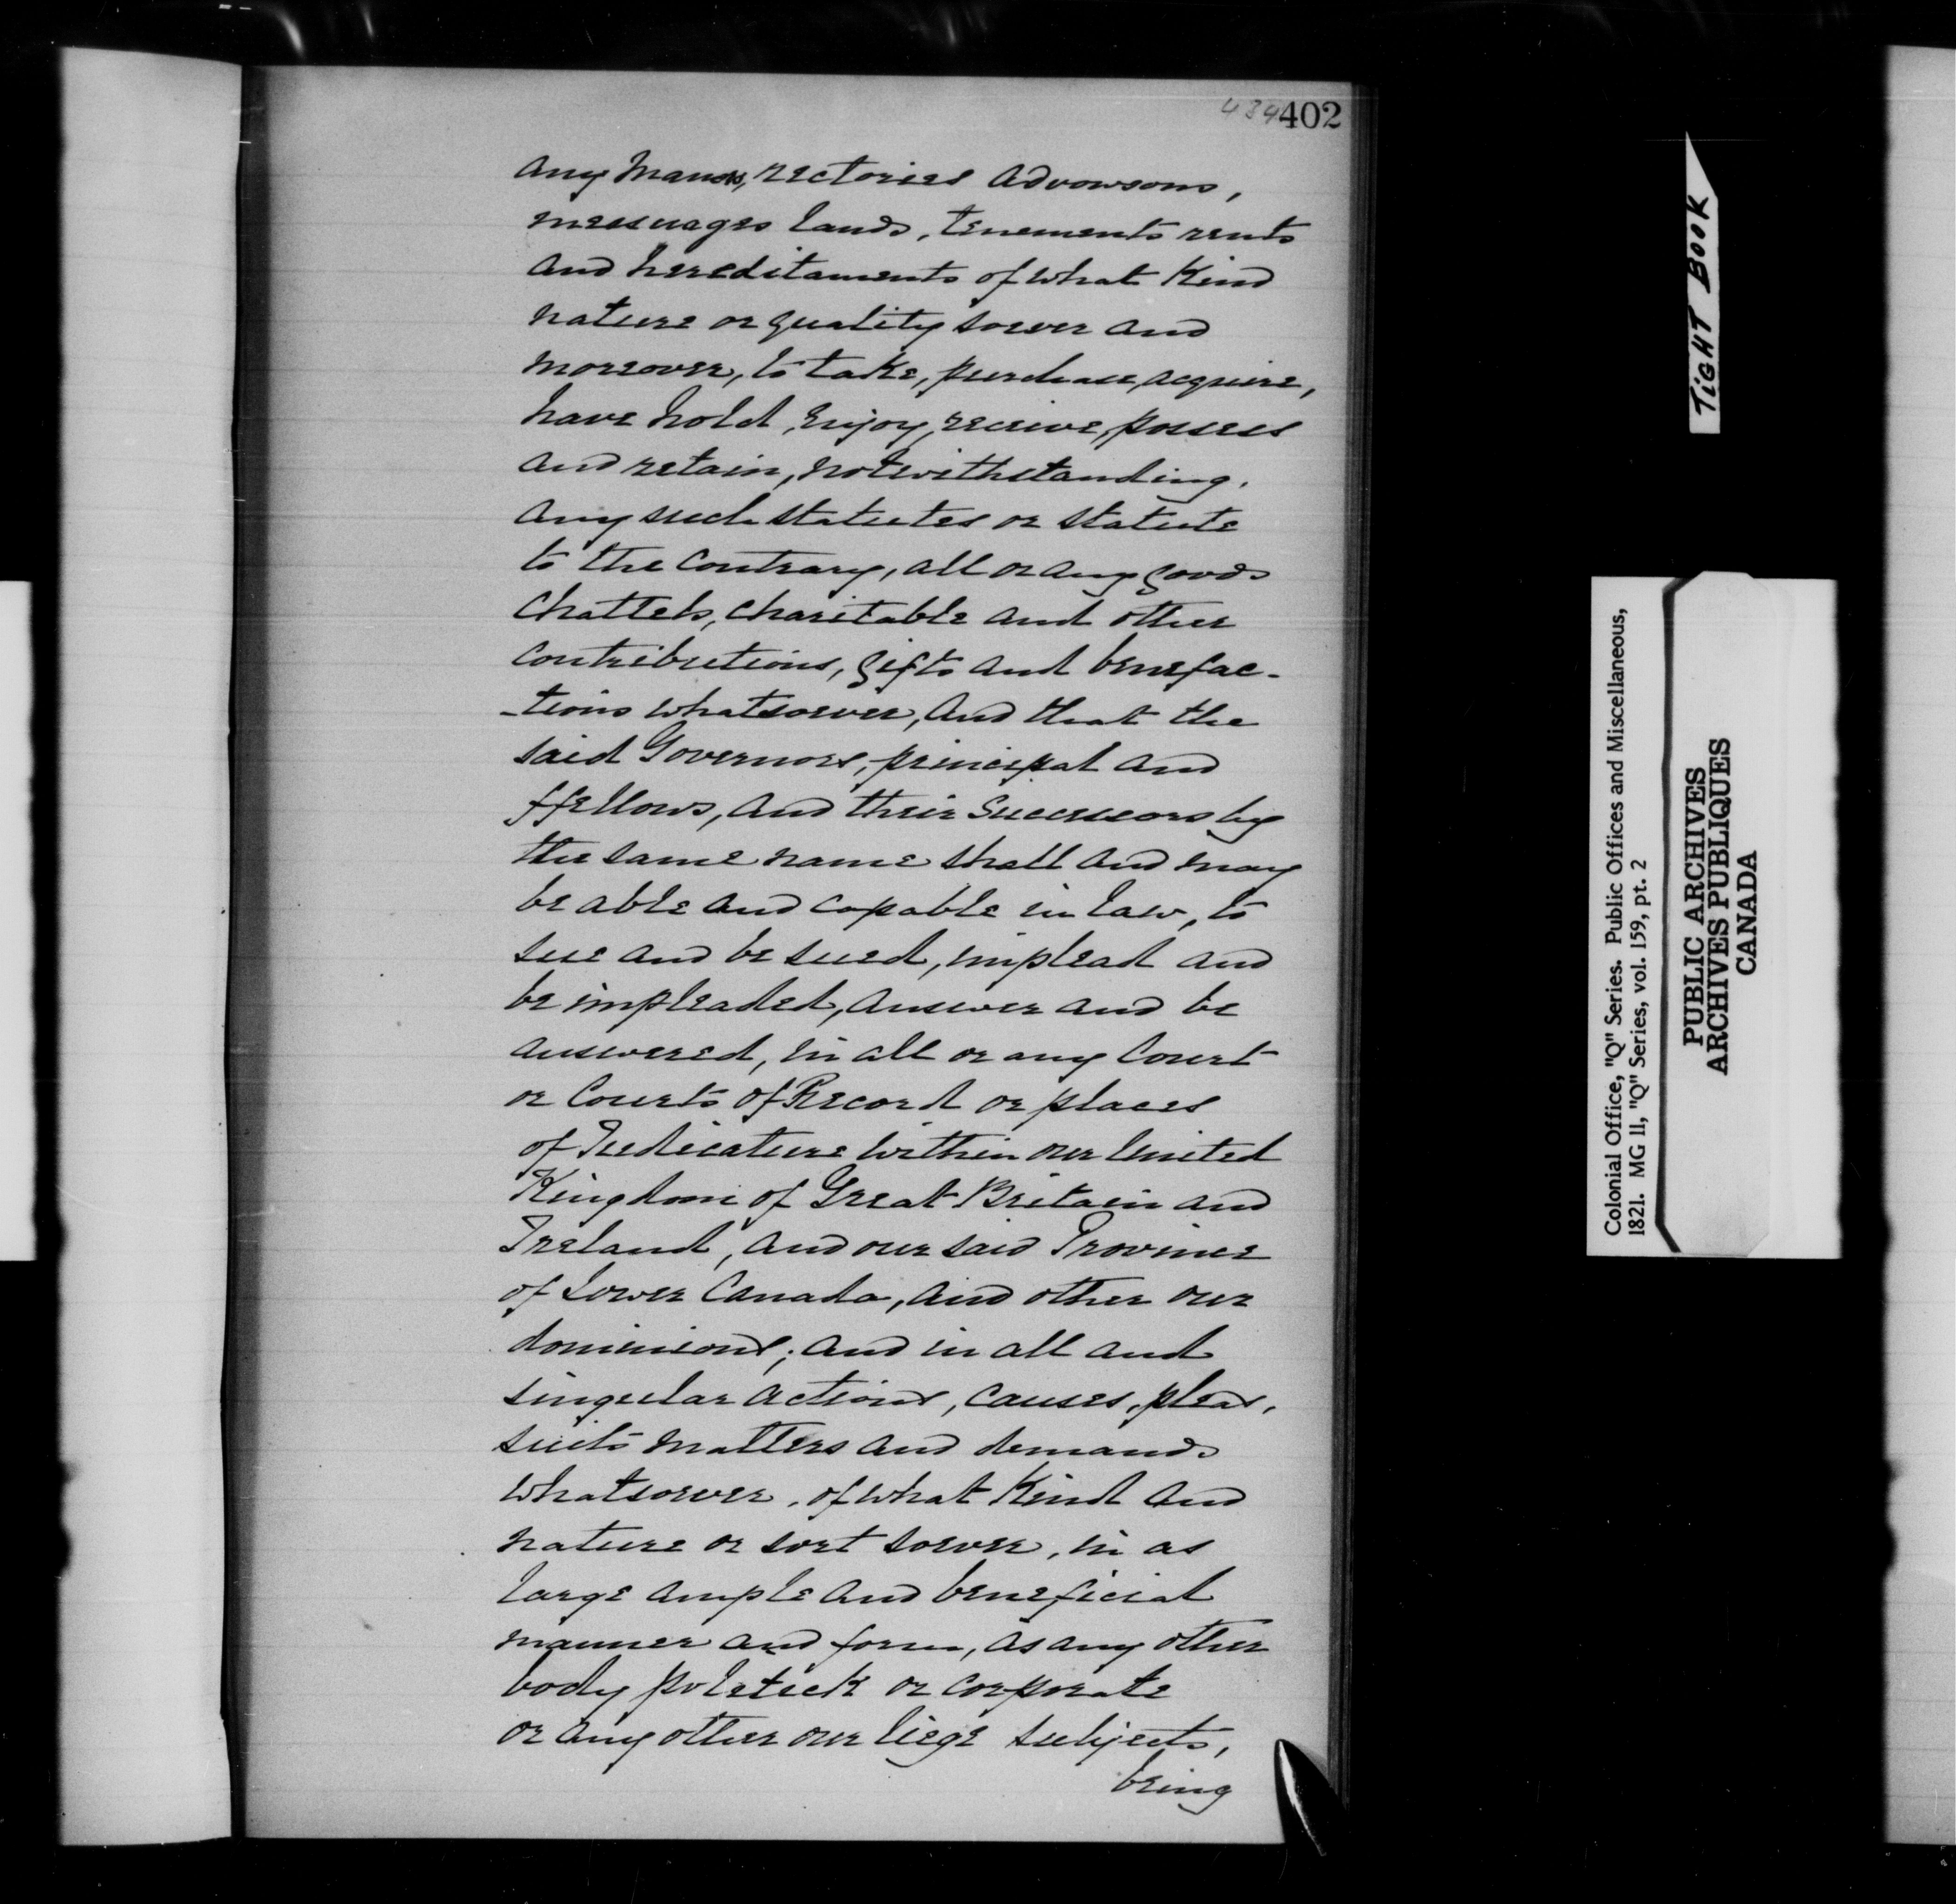 434 402
any Manors, rectories advowsons,
messuages lands, tenements rents
and hereditaments of what Kind
nature or quality soever and
moreover, to take, purchase, acquire,
have hold, enjoy, receive, possess
and retain, notwithstanding.
any such statutes or statute
to the contrary, all or any goods
Chattels, charitable and other
contributions, gifts and benefac-
-tions whatsoever, and that the
said Governors, principal and
ffellows, and their successors by
the same name shall and may
be able and capable in law, to
sue and be sued, implead and
be impleaded, answer and be
answered, in all or any Court
or Courts of Record or places
of Judicature within our United
Kingdom of Great Britain and
Ireland, and our said Province
of Lower Canada, and other our
dominions; and in all and
singular actions, causes, pleas,
suits matters and demands
whatsoever, of what Kind and
nature or sort soever, in as
large ample and beneficial
manner and form, as any other
body politick or corporate
or any other our liege subjects,
being
TIGHT BOOK
Colonial Office, "Q" Series. Public Offices and Miscellaneous,
1821. MG 11, "Q" Series, vol. 159, pt. 2
PUBLIC ARCHIVES
ARCHIVES PUBLIQUES
CANADA